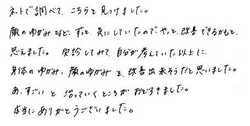 ネットで調べて、こちらを見つけました。
顔のゆがみなど、ずっと気にしていたので、やっと改善できるかもと、
思えました。実診してみて、自分が考えていた以上に、
身体のゆがみ、顔のゆがみを改善出来そうだと思いました。
あ、すごいと治っていくところがわかりました。
本当にありがとうございました。